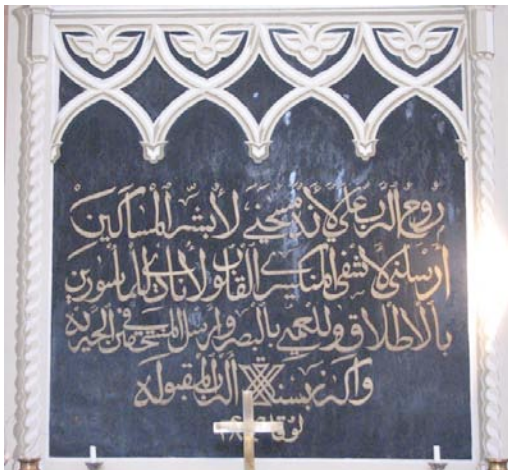 روح الرب علي لأنه مسحني لأبشر المساكين
أرسلني لأشفي المنكسري القلوب لأنادي للمأسورين
بالاطلاق وللعمي بالبصر وارسل المنسحقين في الحرية
واكرز بسنة الرب المقبولة
لوقا